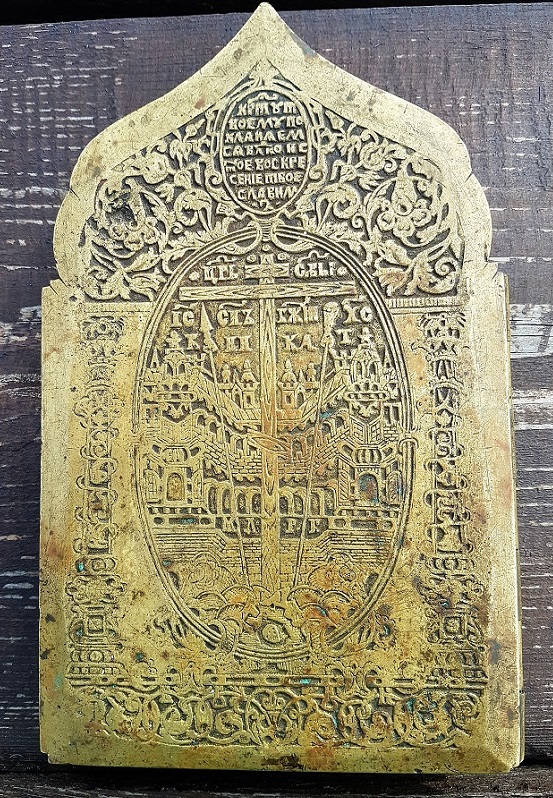 КРТУ Т
ВОЕМУ ПО
КЛАНѦЕМ
СѦ ВЛКО И С
ТОЕ ВОСКРЕ
СЕНІЕ ТВОЕ
СЛАВИМ
ЦРЬ СЛВЫ
ІС СНЪ БЖІИ ХС
К Т
М Л Р Б